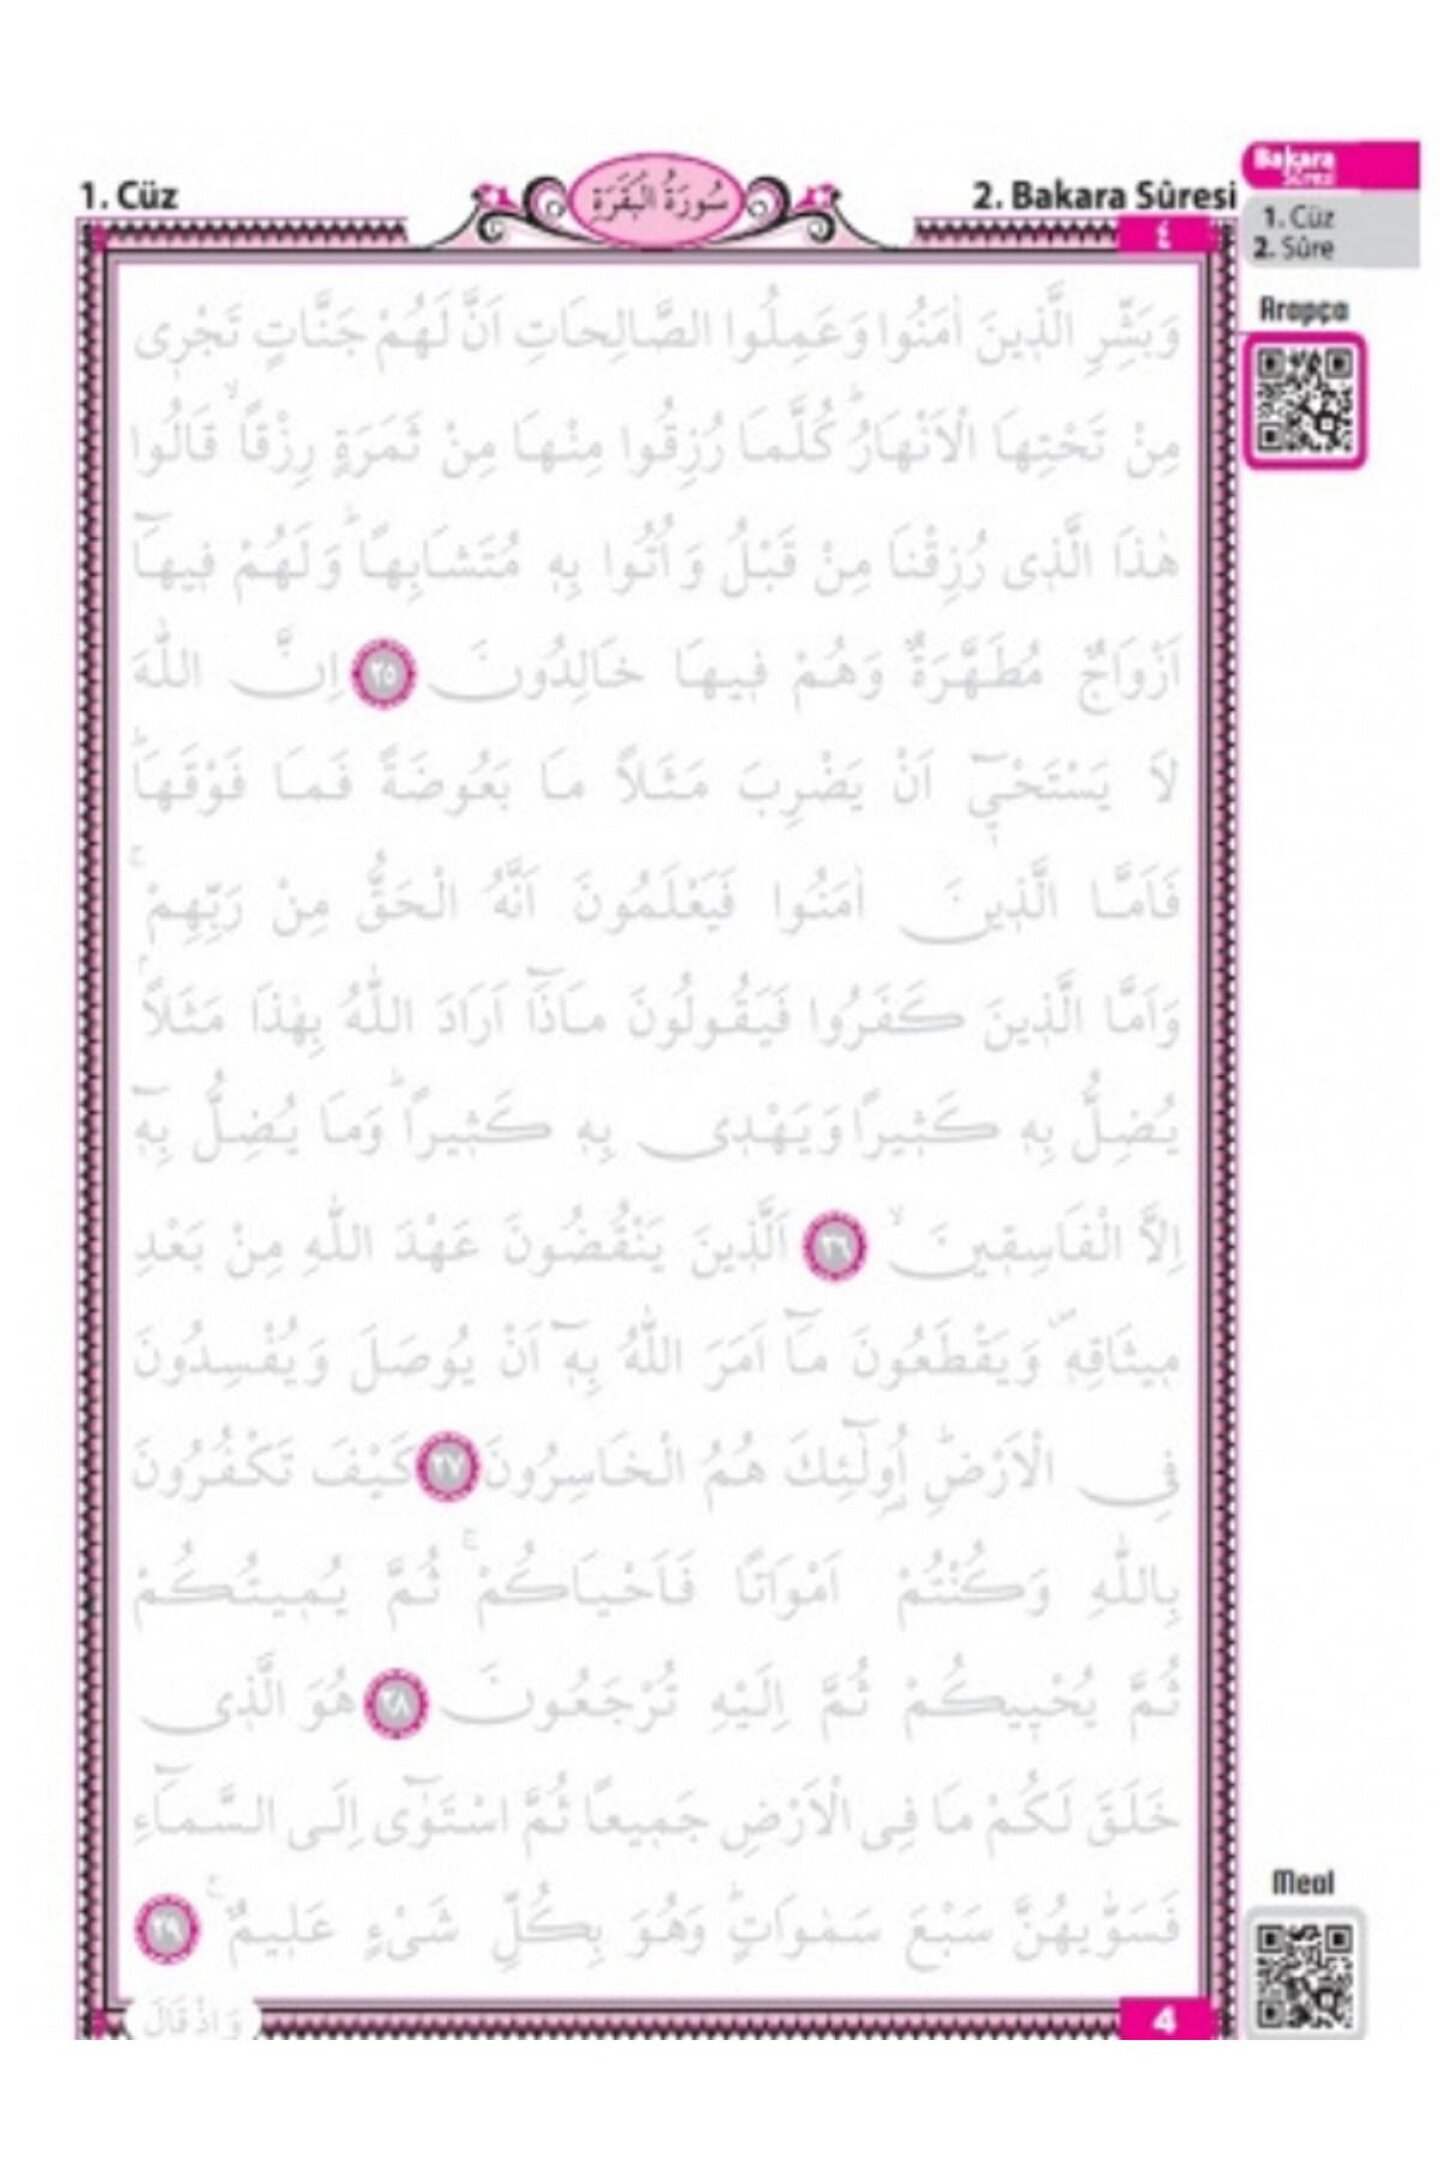 1. Cüz
سُورَةُ الْبَقَرَةِ
2. Bakara Sûresi
٤
Bakara
Sûresi
1. Cüz
2. Sûre
Arapça
وَبَشِّرِ الَّذٖينَ اٰمَنُوا وَعَمِلُوا الصَّالِحَاتِ اَنَّ لَهُمْ جَنَّاتٍ تَجْرٖى
مِنْ تَحْتِهَا الْاَنْهَارُۜ كُلَّمَا رُزِقُوا مِنْهَا مِنْ ثَمَرَةٍ رِزْقاًۙ قَالُوا
هٰذَا الَّذٖى رُزِقْنَا مِنْ قَبْلُ وَاُتُوا بِهٖ مُتَشَابِهاًۜ وَلَهُمْ فٖيهَٓا
اَزْوَاجٌ مُطَهَّرَةٌ وَهُمْ فٖيهَا خَالِدُونَ ﴿٢٥﴾ اِنَّ اللّٰهَ
لَا يَسْتَحْيٖٓ اَنْ يَضْرِبَ مَثَلاً مَا بَعُوضَةً فَمَا فَوْقَهَاۜ
فَاَمَّا الَّذٖينَ اٰمَنُوا فَيَعْلَمُونَ اَنَّهُ الْحَقُّ مِنْ رَبِّهِمْۚ
وَاَمَّا الَّذٖينَ كَفَرُوا فَيَقُولُونَ مَاذَٓا اَرَادَ اللّٰهُ بِهٰذَا مَثَلاًۢ
يُضِلُّ بِهٖ كَثٖيراً وَيَهْدٖى بِهٖ كَثٖيراًۜ وَمَا يُضِلُّ بِهٖٓ
اِلَّا الْفَاسِقٖينَۙ ﴿٢٦﴾ اَلَّذٖينَ يَنْقُضُونَ عَهْدَ اللّٰهِ مِنْ بَعْدِ
مٖيثَاقِهٖۖ وَيَقْطَعُونَ مَٓا اَمَرَ اللّٰهُ بِهٖٓ اَنْ يُوصَلَ وَيُفْسِدُونَ
فِى الْاَرْضِۜ اُو۬لٰٓئِكَ هُمُ الْخَاسِرُونَ ﴿٢٧﴾ كَيْفَ تَكْفُرُونَ
بِاللّٰهِ وَكُنْتُمْ اَمْوَاتاً فَاَحْيَاكُمْۚ ثُمَّ يُمٖيتُكُمْ
ثُمَّ يُحْيٖيكُمْ ثُمَّ اِلَيْهِ تُرْجَعُونَ ﴿٢٨﴾ هُوَ الَّذٖى
خَلَقَ لَكُمْ مَا فِى الْاَرْضِ جَمٖيعاً ثُمَّ اسْتَوٰٓى اِلَى السَّمَٓاءِ
فَسَوّٰيهُنَّ سَبْعَ سَمٰوَاتٍۜ وَهُوَ بِكُلِّ شَىْءٍ عَلٖيمٌۚ ﴿٢٩﴾
Meal
وَاِذْ قَالَ
4